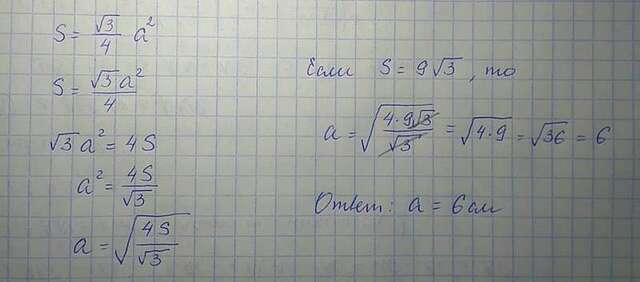 S = √3/4 a²
S = √3a²/4
√3a² = 4S
a² = 4S/√3
a = √(4S/√3)
Если S = 9√3, то
a = √(4·9√3/√3) = √(4·9) = √36 = 6
Ответ: a = 6см